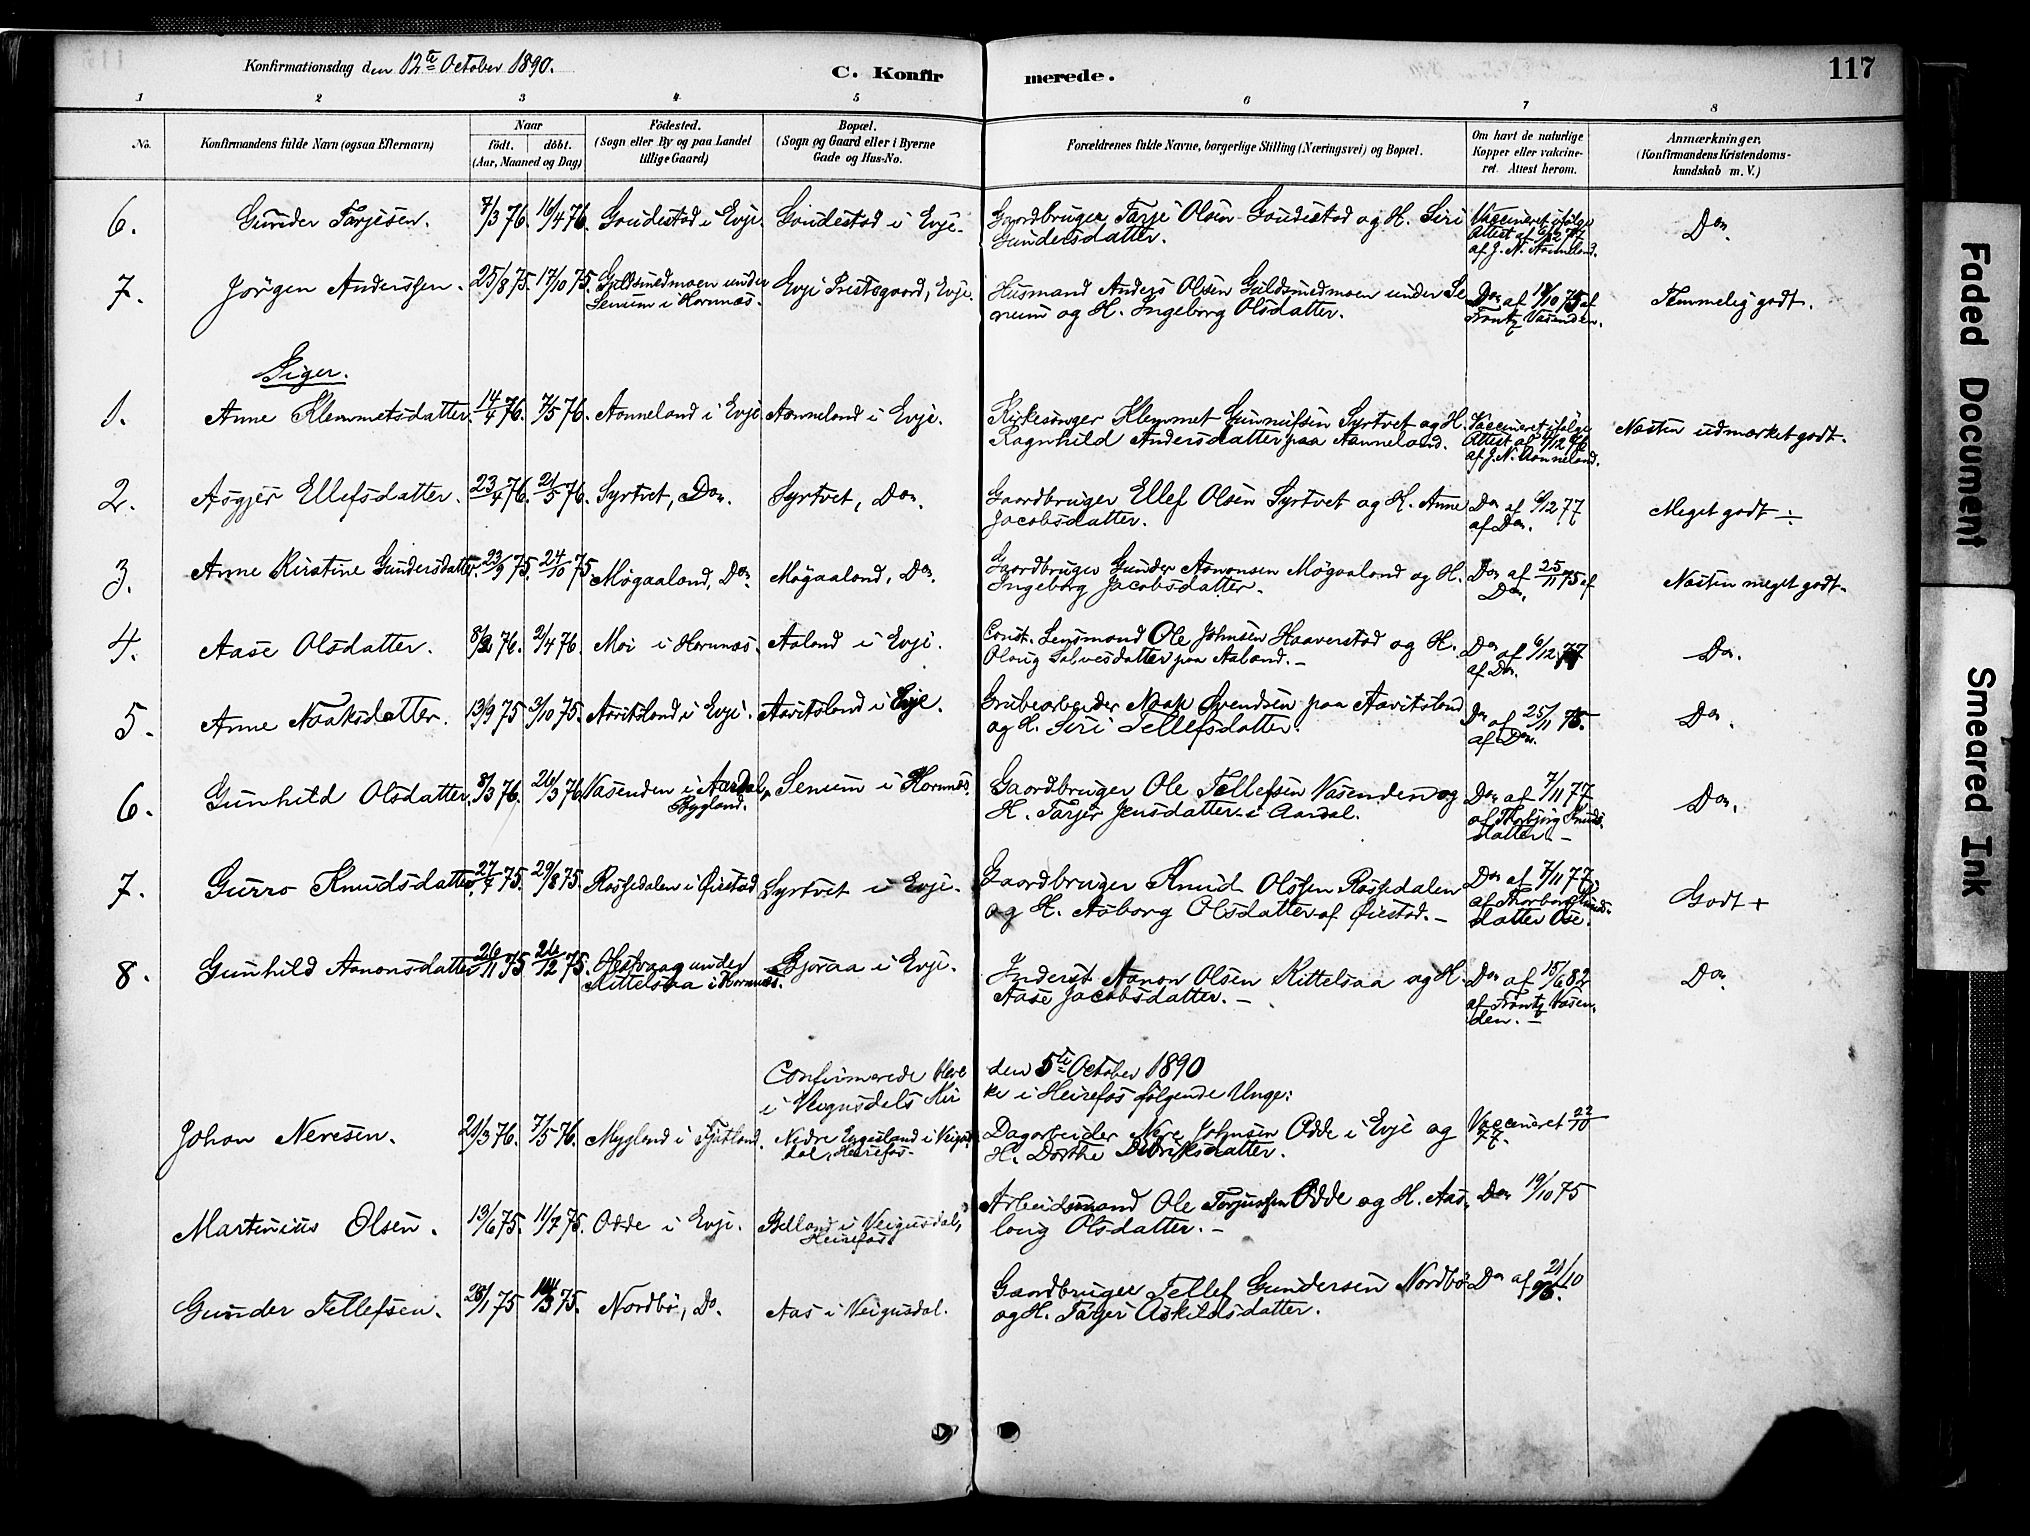 Konfirmationsdag den 12te October 1890.
C. Konfirmerede.
117
1 2 3 4 5 6 7 8
No.
Konfirmandens fulde Navn (ogsaa Efternavn)
Naar
födt. döbt.
(Aar, Maaned og Dag)
Födested.
(Sogn eller By og paa Landet
tillige Gaard)
Bopæl.
(Sogn og Gaard eller i Byerne
Gade og Hus-No.
Forældrenes fulde Navne, borgerlige Stilling (Næringsvei) og Bopæl.
Om havt de naturlige
Kopper eller vakcine-
ret. Attest herom.
Anmærkninger,
(Konfirmandens Kristendoms-
kundskab m. V.)
6. Gunder Tarjesen. 7/3 76. 16/4 76. Goudestad i Evje. Goudestad i Evje. Gaardbruger Tarje Olsen Goudestad og H. Siri
Gundersdatter.
Vaccineret ifølge
Attest af 6/12 77
af J. N. Aanneland.
Do.
7. Jörgen Anderssen. 25/8 75. 17/10 75. Guldsmedmoen under
Senum i Hornnæs.
Evje Prestegaard, Evje. Husmand Anders Olsen Guldsmedmoen under Se
num og H. Ingeborg Olsdatter.
Do. af 18/10 75 af
Tröntz Vasenden.
Temmelig godt.
Piger.
1. Anne Klemmetsdatter. 14/4 76. 7/5 76. Aanneland i Evje Aanneland i Evje. Kirkesanger Klemmet Gunnufsen Syrtvet og H.
Ragnhild Andersdatter paa Aanneland.
Vaccineret ifølge
Attest af 4/12 76
af J. N. Aanneland.
Næsten udmærket godt.
2. Asgjer Ellefsdatter. 23/4 76. 21/5 76. Syrtvet, Do. Syrtvet, Do. Gaardbruger Ellef Olsen Syrtvet og H. Anne
Jacobsdatter.
Do. af 6/12 77
af Do.
Meget godt ÷
3. Anne Kirstine Gundersdatter. 23/9 75. 24/10 75 Møgaaland, Do. Møgaaland, Do. Gaardbruger Gunder Aanonsen Møgaaland og H.
Ingeborg Jacobsdatter.
Do. af 25/11 75 af
Do.
Næsten meget godt.
4. Aase Olsdatter. 8/2 76. 2/4 76. Moi i Hornnæs. Aaland i Evje. Const. Lensmand Ole Johnsen Haaverstad og H.
Olaug Salvesdatter paa Aaland.
Do. af 6/12 77
af Do.
Do.
5. Anne Noaksdatter. 13/9 75 3/10 75. Aavitsland i Evje. Aavitsland i Evje. Grubearbeider Noak Svendsen paa Aavitsland
og H. Siri Tellefsdatter.
Do. af 25/11 75.
af Do.
Do.
6. Gunhild Olsdatter. 8/3 76. 26/3 76. Vasenden i Aardal,
Bygland.
Senum i Hornnæs. Gaardbruger Ole Tellefsen Vasenden og
H. Tarjer Jensdatter i Aardal.
Do. af 7/11 77
af Thorbjörg Knuds-
datter.
Do.
7. Gurro Knudsdatter. 27/7 75. 29/8 75. Rossedalen i Øiestad Syrtvet i Evje. Gaardbruger Knud Olssen Rossedalen
og H. Aaborg Olsdatter af Øiestad.
Do. af 7/11 77.
af Thorborg Knuds-
datter Ose.
Godt +
8. Gunhild Aanonsdatter 26/11 75 26/12 75. under
Kittelsaa i Hornnæs.
Bjoraa i Evje. Inderst Aanon Olsen Kittelsaa og H.
Aase Jacobsdatter.
Do. af 15/6 82
af Tröntz Vasen-
den.
Do.
Confirmerede bleve den 5te October 1890
i Veigusdals Kirke i Heirefos følgende Unge:
Johan Neresen. 21/3 76. 7/5 76. Mygland i Fjotland. Nedre Eugesland i Veigus-
dal, Heirefos.
Dagarbeider Nere Johnsen Odde i Evje og
H. Dorthe Didriksdatter.
Vaccineret 22/10
77.
Martinius Olsen. 13/6 75. 11/7 75. Odde i Evje. Belland i Veigusdal,
Heirefos.
Arbeidsmand Ole Torjussen Odde og H. Aas-
laug Olsdatter.
Do. 19/10 75
Gunder Tellefsen. 28/1 75 14/3 75. Nordbö, Do. Aas i Veigusdal. Gaardbruger Tellef Gundersen Nordbö
og H. Tarjer Askildsdatter.
Do. af 21/10
Faded Document
Smeared Ink